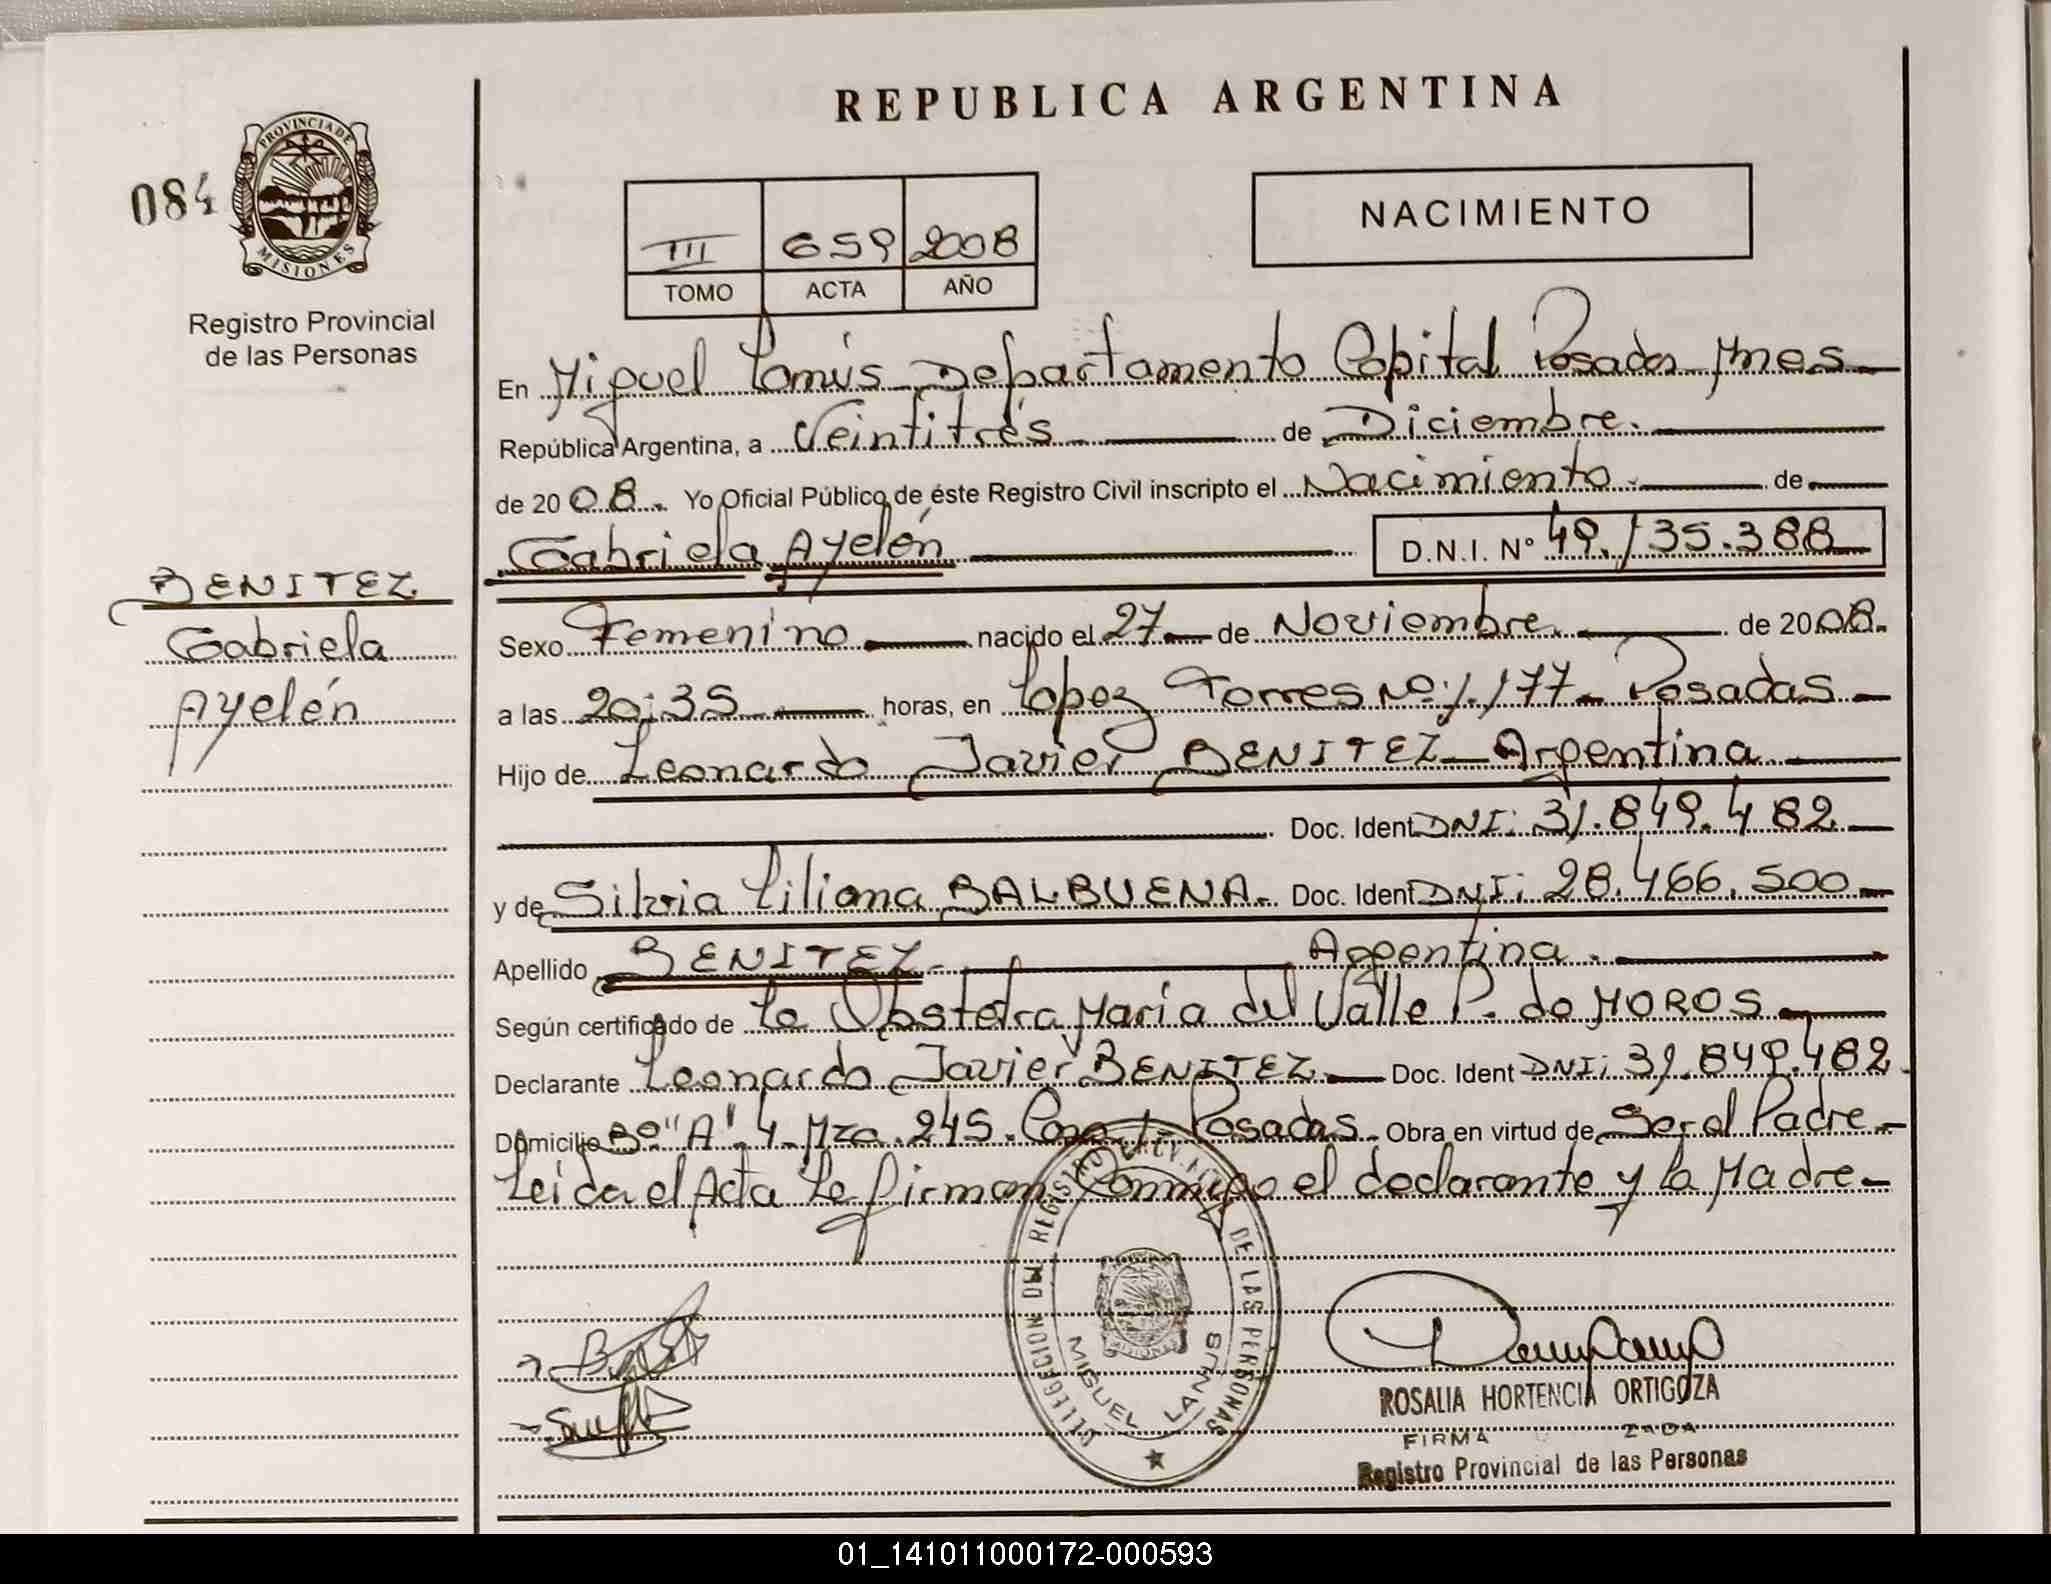 REPUBLICA ARGENTINA
084
PROVINCIA DE
MISIONES
Registro Provincial
de las Personas
III 659 2008
TOMO ACTA AÑO
NACIMIENTO
En Miguel Lanús Departamento Capital Posadas Mnes
República Argentina, a Veintitrés de Diciembre.
de 2008. Yo Oficial Público de éste Registro Civil inscripto el Nacimiento de
Gabriela Ayelén D.N.I. N° 49.135.388
BENITEZ
Gabriela
Ayelén
Sexo Femenino nacido el 27 de Noviembre de 2008.
a las 20:35 horas, en Lopez Torres Nº: 1.177 Posadas
Hijo de Leonardo Javier BENITEZ Argentina
Doc. Ident DNI: 31.849.482
y de Silvia Liliana BALBUENA. Doc. Ident DNI: 28.466.500
Apellido BENITEZ Argentina.
Según certificado de La Obstetra María del Valle P. de MOROS
Declarante Leonardo Javier BENITEZ Doc. Ident DNI: 31.849.482
Domicilio Bº "A" 4 Mza. 245. Casa Posadas. Obra en virtud de Ser el Padre
Leida el Acta La firman Conmigo el declarante y la Madre
DELEGACION DEL REGISTRO DE LAS PERSONAS
MISIONES
MIGUEL LANUS
ROSALIA HORTENCIA ORTIGOZA
FIRMA
Registro Provincial de las Personas
01_141011000172-000593